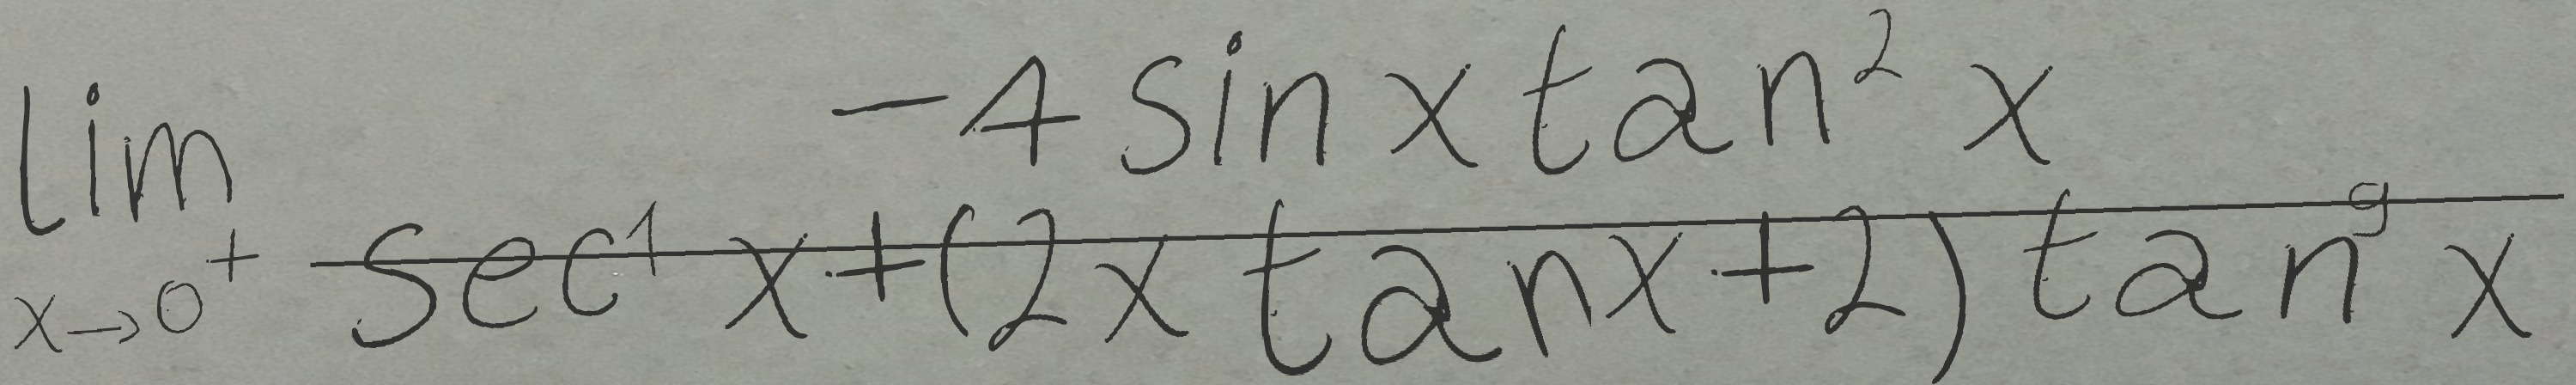 \lim_{x \to 0^+} \frac{-4 \sin x \tan^2 x}{\sec^1 x + (2x \tan x + 2) \tan^g x}